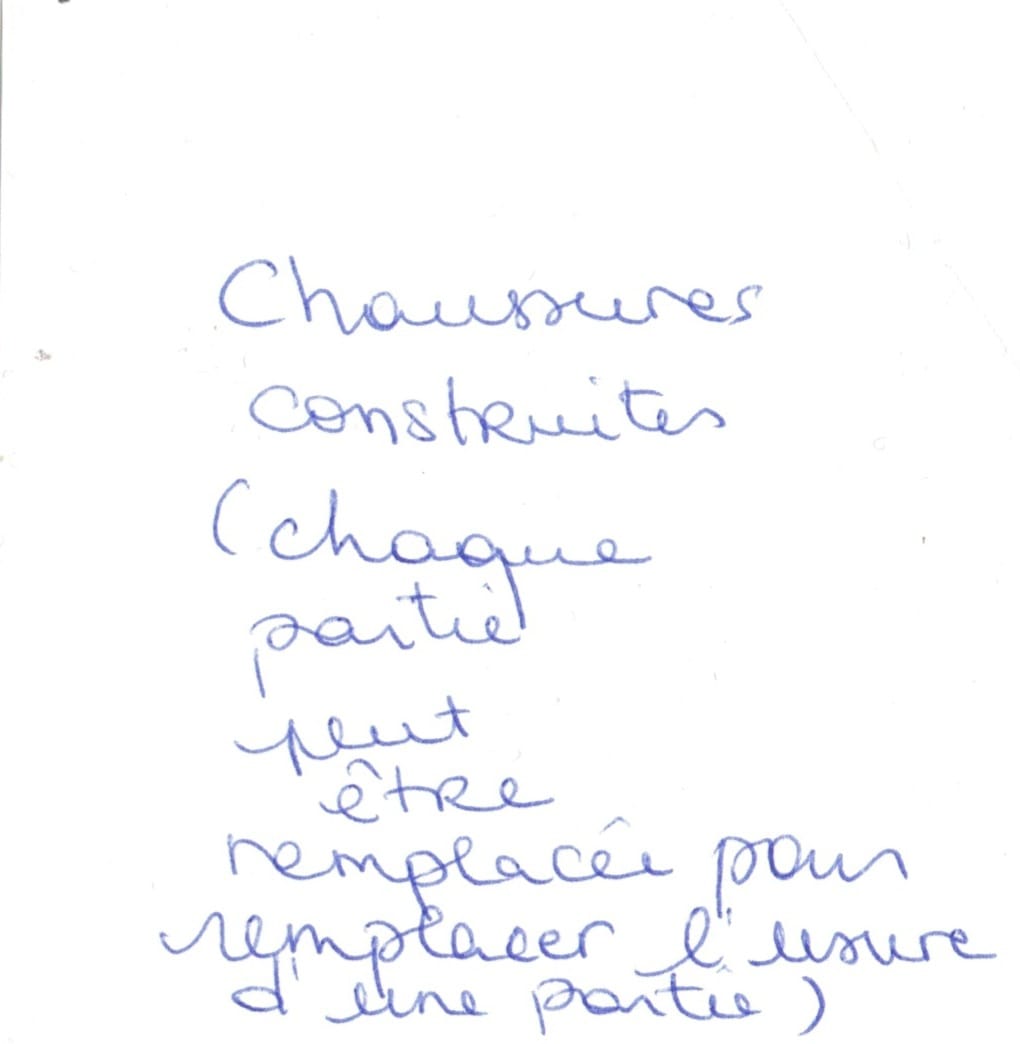 Chaussures
construites
(chaque
partie
peut
être
remplacée pour
remplacer l'usure
d'une partie)